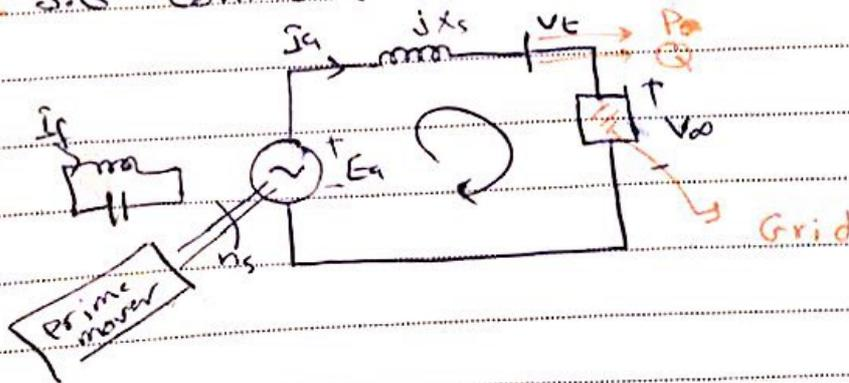 Ia
jXs
Vt
P
Q
If
+
Ea
-
+
V∞
ns
Grid
prime
mover